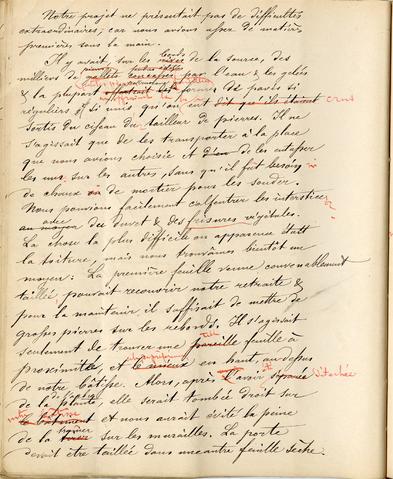 Notre projet ne présentait pas de difficultés
extraordinaires, car nous avions assez de matières
premières sous la main.
bords
Il y avait, sur les rives de la source, des
milliers de galets par l'eau & les gelées
& la plupart affectait les formes de pavés si
réguliers & si unis qu'on eut dit qu'ils étaient crut
sortis du ciseau du tailleur de pierres. Il ne
s'agissait que de les transporter à la place
que nous avions choisie et d'en de les entasser
les uns sur les autres, sans qu'il fut besoin
de chaux ou de mortier pour les souder.
Nous pouvions facilement calfeutrer les interstices
avec
au moyen du duvet & des frisures végétales.
La chose la plus difficile en apparence était
la toiture, mais nous trouvâmes bientôt un
moyen: La première feuille venue convenablement
taillée, pouvait recouvrir notre retraite &
pour la maintenir il suffisait de mettre de
grosses pierres sur les rebords. Il s'agissait
seulement de trouver une pareille feuille à
telle
proximité, et en haut, au-dessus
de notre bâtisse. Alors, après l'avoir séparée détachée
de la plante elle serait tombée droit sur
notre bâtisse
le bâtiment et nous aurait évité la peine
trainer
de la tirer sur les murailles. La porte
devait être taillée dans une autre feuille sèche.